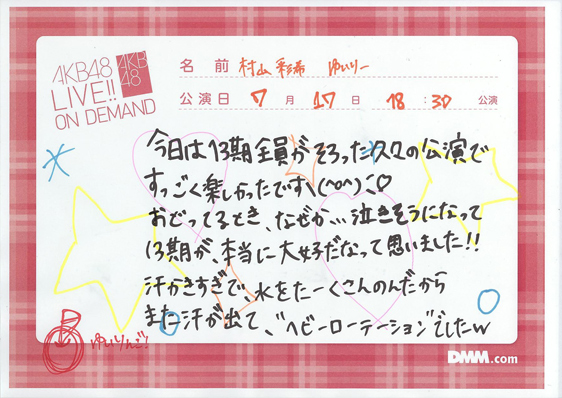 AKB48
LIVE!!
ON DEMAND
AKB
48
名前 村山 彩希 ゆいりー
公演日 7月17日 18:30 公演
今日は13期全員がそろった久々の公演で
すっごく楽しかったです\(^o^)／♡
おどってるとき、なぜか…泣きそうになって
13期が、本当に大好だなって思いました!!
汗かきすぎで、水をたーくさんのんだから
また汗が出て、"ヘビーローテーション"でしたw
ゆいりんご!
DMM.com